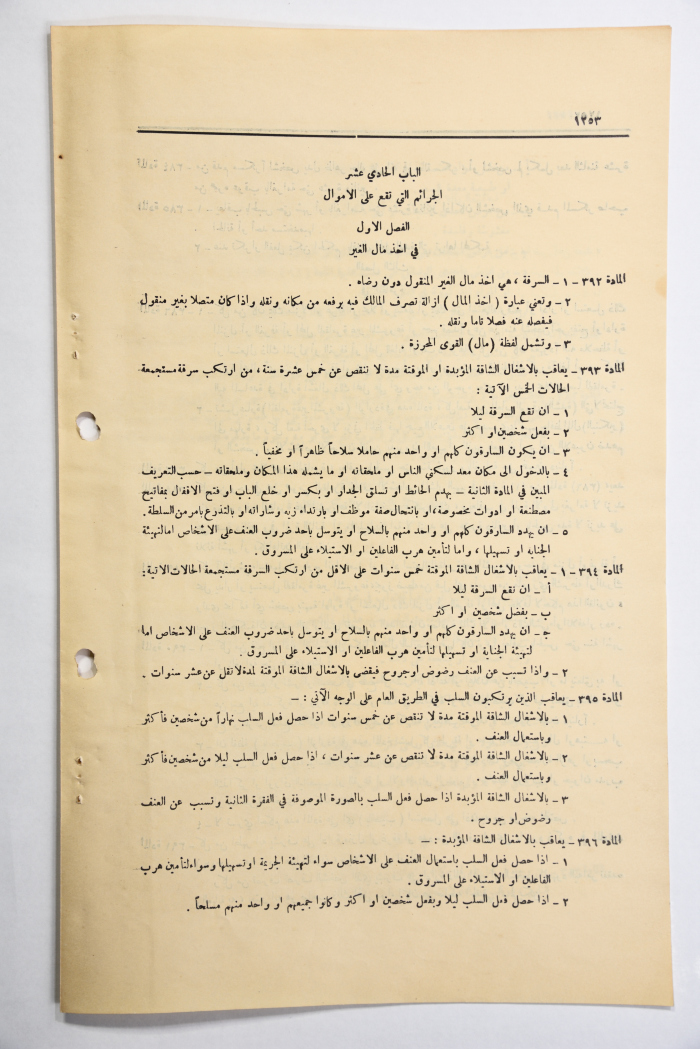 ١٢٥٣
الباب الحادي عشر
الجرائم التي تقع على الاموال
الفصل الاول
في اخذ مال الغير
المادة ٣٩٢ - ١ - السرقة ، هي اخذ مال الغير المنقول دون رضاه .
٢ - وتعني عبارة ( اخذ المال ) ازالة تصرف المالك فيه برفعه من مكانه ونقله واذا كان متصلا بغير منقول
فيفصله عنه فصلا تاما ونقله .
٣ - وتشمل لفظة (مال) القوى المحرزة .
المادة ٣٩٣ - يعاقب بالاشغال الشاقة المؤبدة او الموقتة مدة لا تنقص عن خمس عشرة سنة ، من ارتكب سرقة مستجمعة
الحالات الخمس الآتية :
١ - ان تقع السرقة ليلا
٢ - بفعل شخصين او اكثر
٣ - ان يكون السارقون كلهم او واحد منهم حاملا سلاحاً ظاهراً او مخفياً .
٤ - بالدخول الى مكان معد لسكنى الناس او ملحقاته او ما يشمله هذا المكان وملحقاته - حسب التعريف
المبين في المادة الثانية - بهدم الحائط او تسلق الجدار او بكسر او خلع الباب او فتح الاقفال بمفاتيح
مصطنعة او ادوات مخصوصة ، او بانتحال صفة موظف او بارتداء زيه وشاراته او بالتذرع بامر من السلطة .
٥ - ان يهدد السارقون كلهم او واحد منهم بالسلاح او يتوسل باحد ضروب العنف على الاشخاص اما لتهيئة
الجناية او تسهيلها ، واما لتأمين هرب الفاعلين او الاستيلاء على المسروق .
المادة ٣٩٤ - ١ - يعاقب بالاشغال الشاقة الموقتة خمس سنوات على الاقل من ارتكب السرقة مستجمعة الحالات الاتية :
أ - ان تقع السرقة ليلا
ب - بفضل شخصين او اكثر
ج - ان يهدد السارقون كلهم او واحد منهم بالسلاح او يتوسل باحد ضروب العنف على الاشخاص اما
لتهيئة الجناية او تسهيلها لتأمين هرب الفاعلين او الاستيلاء على المسروق .
٢ - واذا تسبب عن العنف رضوض او جروح فيقضى بالاشغال الشاقة الموقتة لمدة لا تقل عن عشر سنوات .
المادة ٣٩٥ - يعاقب الذين يرتكبون السلب في الطريق العام على الوجه الآتي : -
١ - بالاشغال الشاقة الموقتة مدة لا تنقص عن خمس سنوات اذا حصل فعل السلب نهاراً من شخصين فأكثر
وباستعمال العنف .
٢ - بالاشغال الشاقة الموقتة مدة لا تنقص عن عشر سنوات ، اذا حصل فعل السلب ليلا من شخصين فأكثر
وباستعمال العنف .
٣ - بالاشغال الشاقة المؤبدة اذا حصل فعل السلب بالصورة الموصوفة في الفقرة الثانية وتسبب عن العنف
رضوض او جروح .
المادة ٣٩٦ - يعاقب بالاشغال الشاقة المؤبدة : -
١ - اذا حصل فعل السلب باستعمال العنف على الاشخاص سواء لتهيئة الجريمة او تسهيلها وسواء لتأمين هرب
الفاعلين او الاستيلاء على المسروق .
٢ - اذا حصل فعل السلب ليلا وبفعل شخصين او اكثر وكانوا جميعهم او واحد منهم مسلحاً .